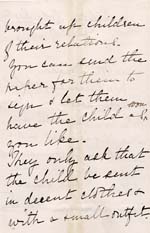 brought up children
of their relations.
You can send the
paper for them to
sign & let them
have the child as soon as
you like.
They only ask that
the child be sent
in decent clothes &
with a small outfit.